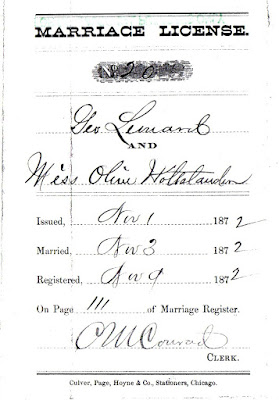 MARRIAGE LICENSE.
No 20
Geo Lenard
AND
Miss Olive
Issued, Nov 1 1872
Married, Nov 3 1872
Registered, Nov 9 1872
On Page 111 of Marriage Register.
C M Conrad
CLERK.
Culver, Page, Hoyne & Co., Stationers, Chicago.